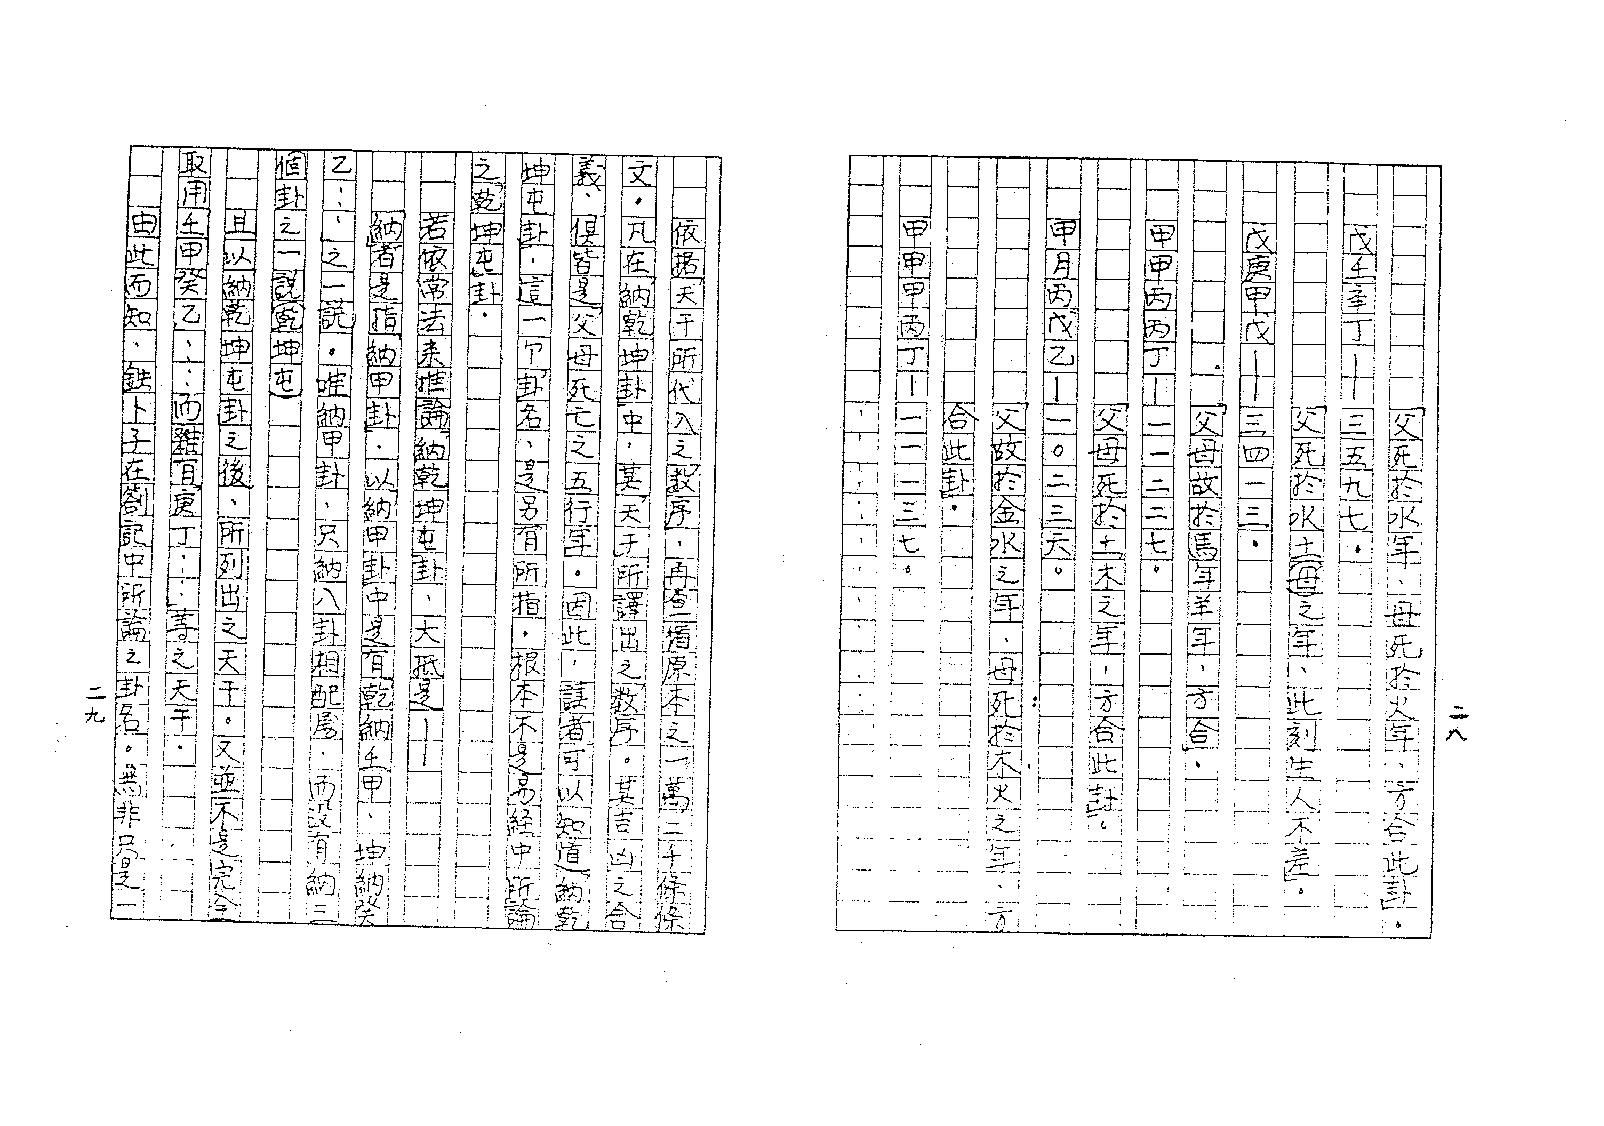 父死於水年、母死於火年、方合此卦。
戊壬辛丁——三五九七。
父死於水土母之年、此刻生人不差。
戊庚甲戊——三四一三。
父母故於馬年羊年、方合。
甲甲丙丙丁—一一二二七。
父母死於土木之年，方合此卦。
甲月丙戊乙—一０二三六。
父故於金水之年、母死於木火之年、方
合此卦。
甲甲甲丙丁—一一一三七。
二八
依据天干所代入之数序，再查一遍原本之一萬二千條條
文，凡在納乾坤卦中，其天干所譯出之数序。其吉凶之含
義、俱皆是父母死亡之五行年。因此，讀者可以知道納乾
坤屯卦，這一个卦名、是另有所指，根本不是易経中所論
之乾坤屯卦。
若依常法來推論納乾坤屯卦、大抵是——
納者是指納甲卦，以納甲卦中是有乾納壬甲、坤納癸
乙……之一説。唯納甲卦、只納八卦相配局，而没有納三
個卦之一説（乾坤屯）
且以納乾坤屯卦之後、所列出之天干。又並不是完全
取用壬甲癸乙……而雜有庚丁……等之天干。
由此而知、鉄卜子在劄記中所論之卦名。無非只是一
二九